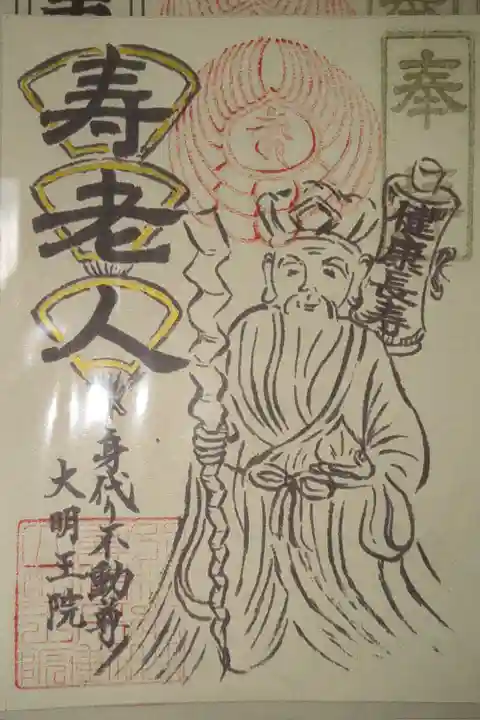 奉
健康長寿
寿老人
身代り不動尊
大明王院